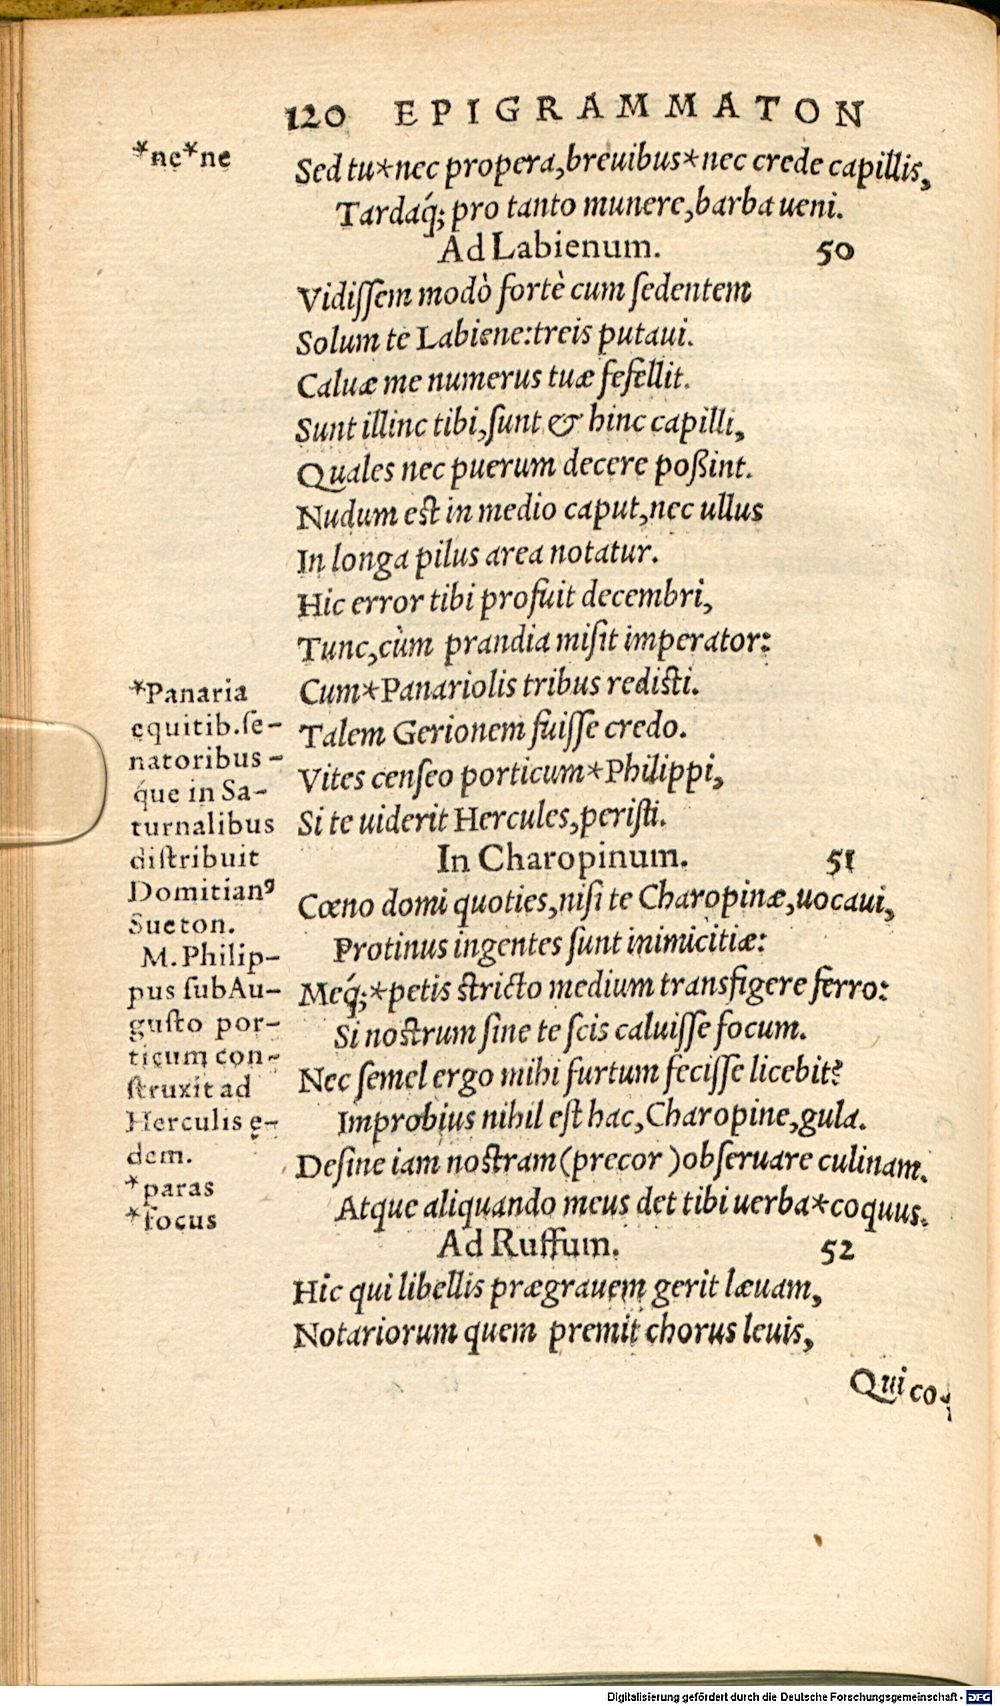 120 EPIGRAMMATON
*ne*ne
Sed tu*nec propera,breuibus*nec crede capillis,
Tardaq́; pro tanto munere,barba ueni.
Ad Labienum. 50
Vidiſſem modò fortè cum ſedentem
Solum te Labiene:treis putaui.
Caluæ me numerus tuæ fefellit.
Sunt illinc tibi,ſunt & hinc capilli,
Quales nec puerum decere poßint.
Nudum est in medio caput,nec ullus
In longa pilus area notatur.
Hic error tibi profuit decembri,
Tunc,cùm prandia miſit imperator:
Cum*Panariolis tribus rediſti.
Talem Gerionem fuiſſe credo.
Vites cenſeo porticum*Philippi,
Si te uiderit Hercules,periſti.
*Panaria
equitib.ſe-
natoribus-
q́ue in Sa-
turnalibus
diſtribuit
Domitianꝰ
Sueton.
M.Philip-
pus ſubAu-
guſto por-
ticum con-
ſtruxit ad
Herculis ę-
dem.
*paras
*focus
In Charopinum. 51
Cœno domi quoties,niſi te Charopinæ,uocaui,
Protinus ingentes ſunt inimicitiæ:
Meq́;*petis ſtricto medium transfigere ferro:
Si noſtrum ſine te ſcis caluiſſe focum.
Nec ſemel ergo mihi furtum feciſſe licebit?
Improbius nihil eſt hac,Charopine,gula.
Deſine iam noſtram(precor )obſeruare culinam.
Atque aliquando meus det tibi uerba*coquus.
Ad Ruffum. 52
Hic qui libellis prægrauem gerit læuam,
Notariorum quem premit chorus leuis,
Qui co-
Digitalisierung gefördert durch die Deutsche Forschungsgemeinschaft - DFG